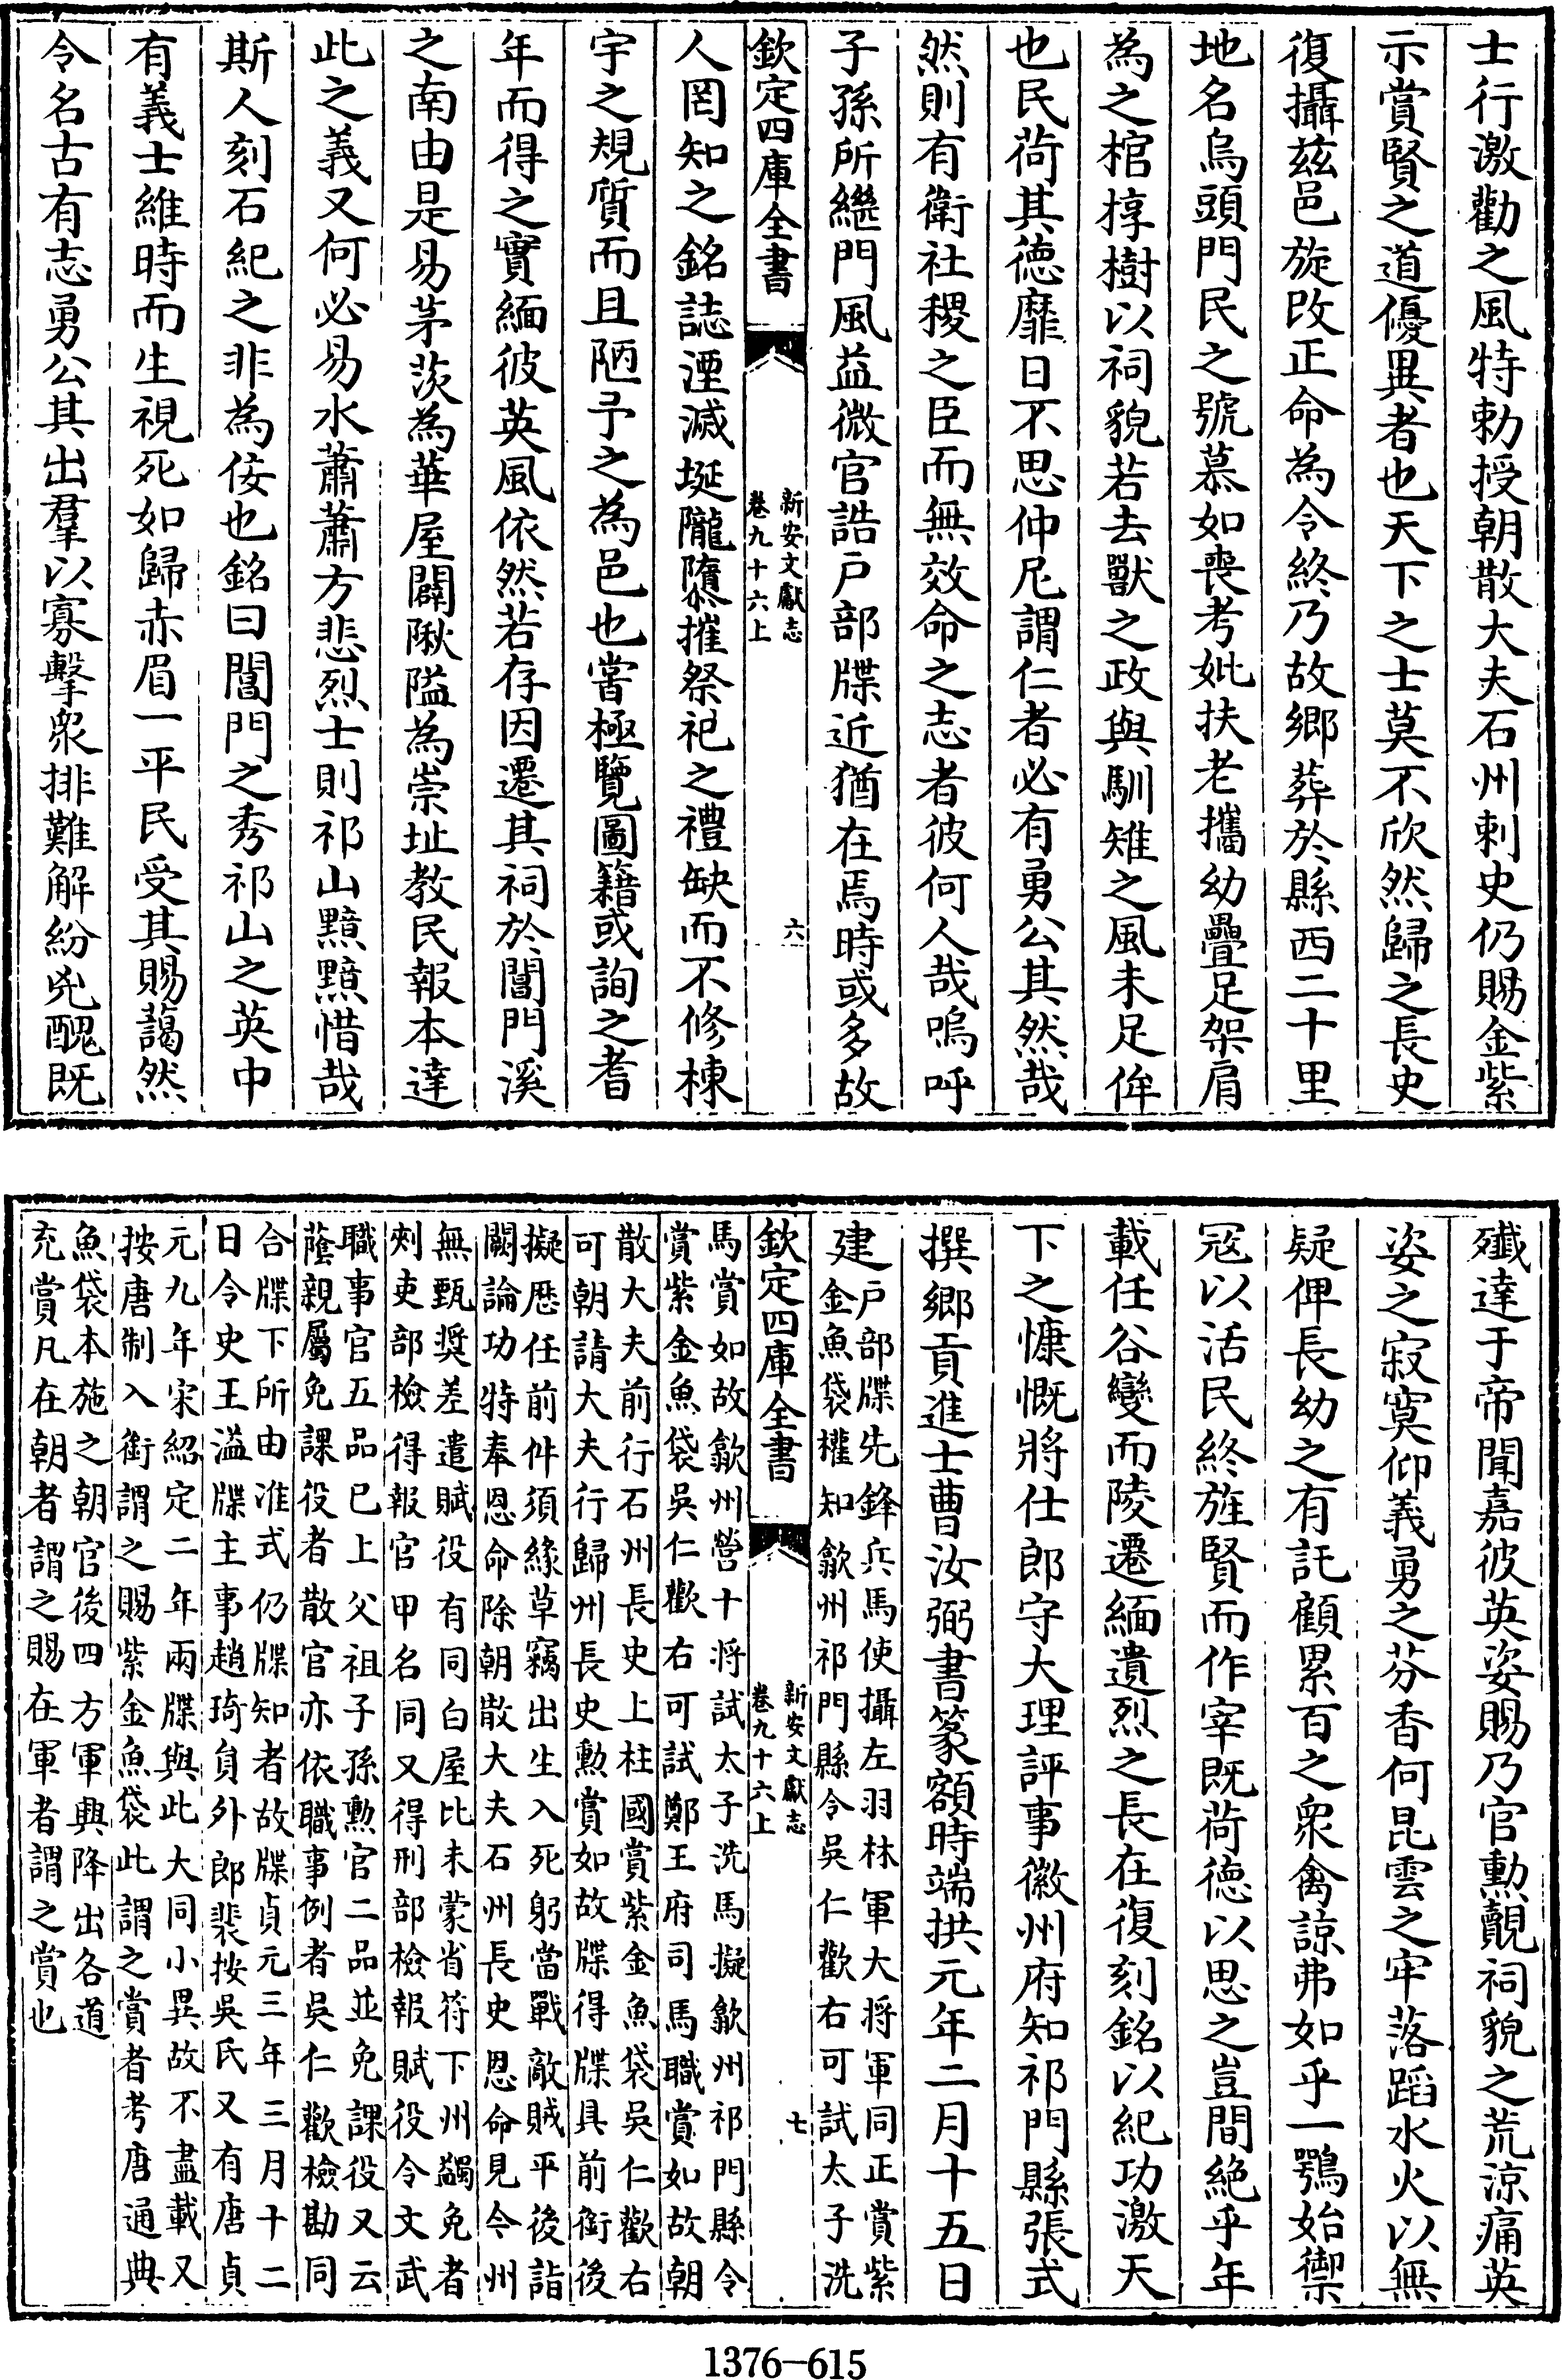 士行激勸之風特勅授朝散大夫石州刺史仍賜金紫
示賞賢之道優異者也天下之士莫不欣然歸之長史
復攝兹邑旋改正命為令終乃故鄉葬於縣西二十里
地名烏頭門民之號慕如喪考妣扶老攜幼疊足架肩
為之棺椁樹以祠貌若去獸之政與馴雉之風未足侔
也民荷其德靡日不思仲尼謂仁者必有勇公其然哉
然則有衛社稷之臣而無效命之志者彼何人哉嗚呼
子孫所繼門風益微官誥户部牒近猶在焉時或多故
欽定四庫全書
新安文獻志
卷九十六上
六
人罔知之銘誌湮滅埏隴隳摧祭祀之禮缺而不修棟
宇之規質而且陋予之為邑也嘗極覽圖籍或詢之耆
年而得之實緬彼英風依然若存因遷其祠於閶門溪
之南由是易茅茨為華屋闢湫隘為崇址教民報本達
此之義又何必易水蕭蕭方悲烈士則祁山黯黯惜哉
斯人刻石紀之非為佞也銘曰閶門之秀祁山之英中
有義士維時而生視死如歸赤眉一平民受其賜藹然
令名古有志勇公其出羣以寡擊衆排難解紛兇醜既
殲達于帝聞嘉彼英姿賜乃官勳覿祠貌之荒涼痛英
姿之寂寞仰義勇之芬香何昆雲之牢落蹈水火以無
疑俾長幼之有託顧累百之衆禽諒弗如乎一鶚始禦
冦以活民終旌賢而作宰既荷德以思之豈間絶乎年
載任谷變而陵遷緬遺烈之長在復刻銘以紀功激天
下之慷慨將仕郎守大理評事徽州府知祁門縣張式
撰鄉貢進士曹汝弼書篆額時端拱元年二月十五日
建
户部牒先鋒兵馬使攝左羽林軍大将軍同正賞紫
金魚袋權知歙州祁門縣令吳仁歡右可試太子洗
欽定四庫全書
新安文獻志
卷九十六上
七
馬賞如故歙州營十将試太子洗馬擬歙州祁門縣令
賞紫金魚袋吳仁歡右可試鄭王府司馬職賞如故朝
散大夫前行石州長史上柱國賞紫金魚袋吳仁歡右
可朝請大夫行歸州長史勳賞如故牒得牒具前銜後
擬歴任前件須緣草竊出生入死躬當戰敵賊平後詣
闕論功特奉恩命除朝散大夫石州長史恩命見今州
無甄奬差遣賦役有同白屋比未蒙省符下州蠲免者
刺吏部檢得報官甲名同又得刑部檢報賦役令文武
職事官五品已上父祖子孫勲官二品並免課役又云
蔭親屬免課役者散官亦依職事例者吳仁歡檢勘同
合牒下所由准式仍牒知者故牒貞元三年三月十二
日令史王溢牒主事趙琦員外郎裴按吳氏又有唐貞
元九年宋紹定二年兩牒與此大同小異故不盡載又
按唐制入銜謂之賜紫金魚袋此謂之賞者考唐通典
魚袋本施之朝官後四方軍興降出各道
充賞凡在朝者謂之賜在軍者謂之賞也
1376-615